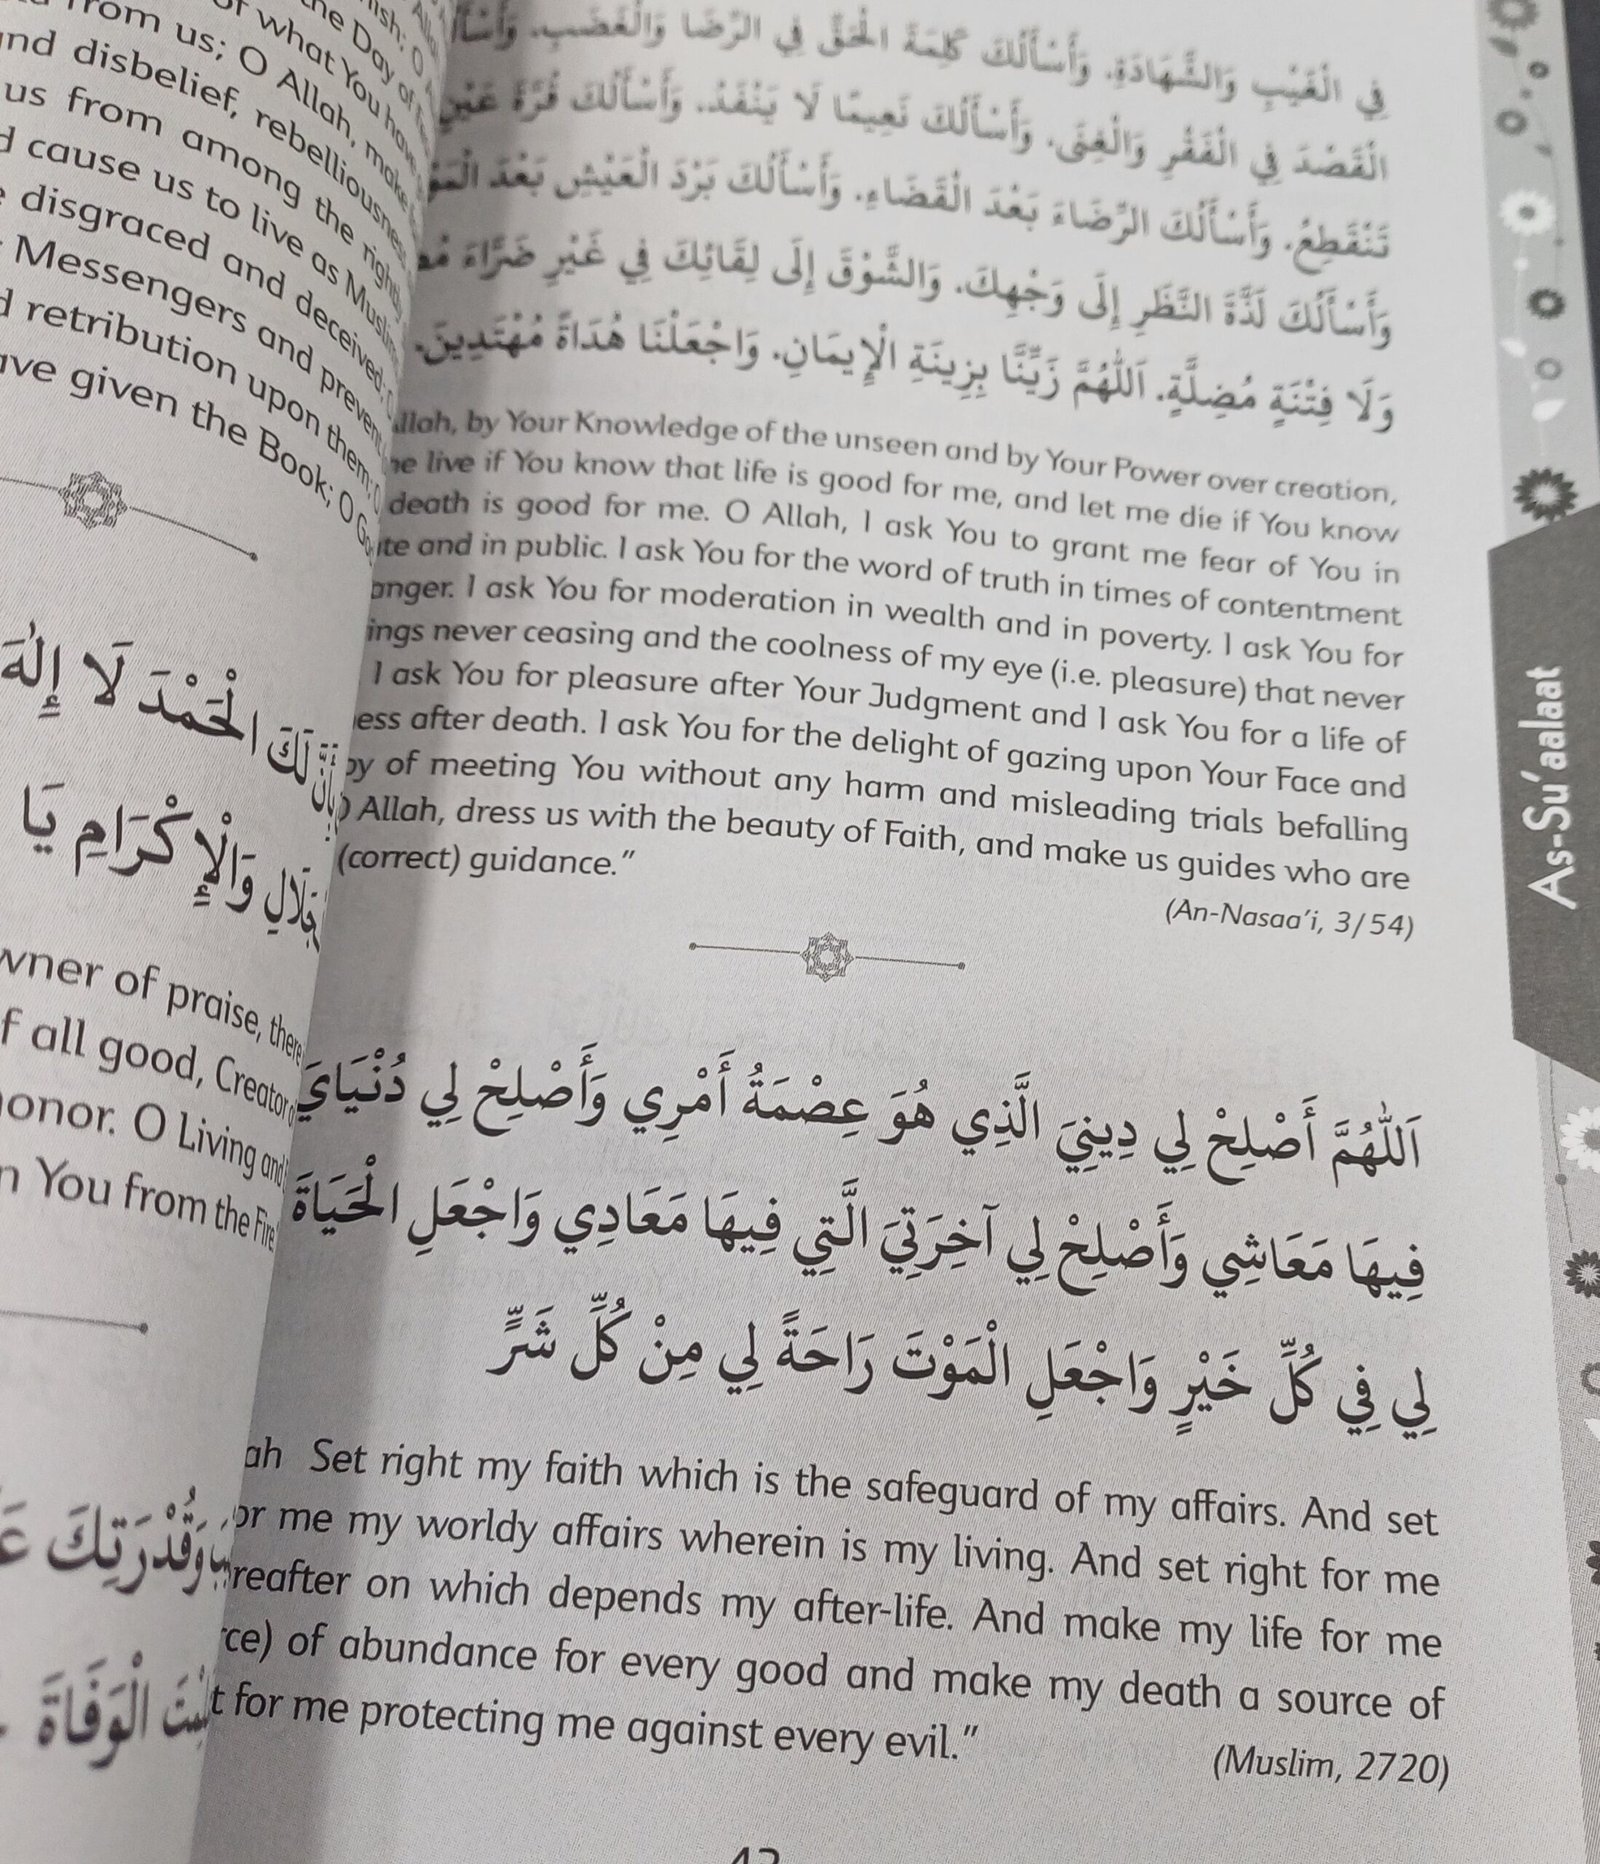 from us; O Allah, make
and disbelief, rebelliousness
us from among the
cause us to live as Muslims
disgraced and deceived;
Messengers and prevent
retribution upon them;
given the Book; O
لَكَ الْحَمْدَ لَا إِلٰهَ
وَالْإِكْرَامِ يَا
of praise, there
all good, Creator
honor. O Living and
You from the Fire
وَقُدْرَتِكَ
الْوَفَاةَ
فِي الْغَيْبِ وَالشَّهَادَةِ. وَأَسْأَلُكَ كَلِمَةَ الْحَقِّ فِي الرِّضَا وَالْغَضَبِ.
الْقَصْدَ فِي الْفَقْرِ وَالْغِنَى. وَأَسْأَلُكَ نَعِيمًا لَا يَنْفَدُ. وَأَسْأَلُكَ قُرَّةَ عَيْنٍ
تَنْقَطِعُ. وَأَسْأَلُكَ الرِّضَاءَ بَعْدَ الْقَضَاءِ. وَأَسْأَلُكَ بَرْدَ الْعَيْشِ بَعْدَ
وَأَسْأَلُكَ لَذَّةَ النَّظَرِ إِلَى وَجْهِكَ. وَالشَّوْقَ إِلَى لِقَائِكَ فِي غَيْرِ ضَرَّاءَ
وَلَا فِتْنَةٍ مُضِلَّةٍ. اَللّٰهُمَّ زَيِّنَّا بِزِينَةِ الْإِيمَانِ. وَاجْعَلْنَا هُدَاةً مُهْتَدِينَ.
Allah, by Your Knowledge of the unseen and by Your Power over creation,
live if You know that life is good for me, and let me die if You know
death is good for me. O Allah, I ask You to grant me fear of You in
and in public. I ask You for the word of truth in times of contentment
anger. I ask You for moderation in wealth and in poverty. I ask You for
never ceasing and the coolness of my eye (i.e. pleasure) that never
I ask You for pleasure after Your Judgment and I ask You for a life of
after death. I ask You for the delight of gazing upon Your Face and
of meeting You without any harm and misleading trials befalling
O Allah, dress us with the beauty of Faith, and make us guides who are
(correct) guidance."
(An-Nasaa'i, 3/54)
اَللّٰهُمَّ أَصْلِحْ لِي دِينِيَ الَّذِي هُوَ عِصْمَةُ أَمْرِي وَأَصْلِحْ لِي دُنْيَايَ
فِيهَا مَعَاشِي وَأَصْلِحْ لِي آخِرَتِيَ الَّتِي فِيهَا مَعَادِي وَاجْعَلِ الْحَيَاةَ
لِي فِي كُلِّ خَيْرٍ وَاجْعَلِ الْمَوْتَ رَاحَةً لِي مِنْ كُلِّ شَرٍّ
Set right my faith which is the safeguard of my affairs. And set
me my worldy affairs wherein is my living. And set right for me
on which depends my after-life. And make my life for me
of abundance for every good and make my death a source of
for me protecting me against every evil."
(Muslim, 2720)
As-Su'aalaat